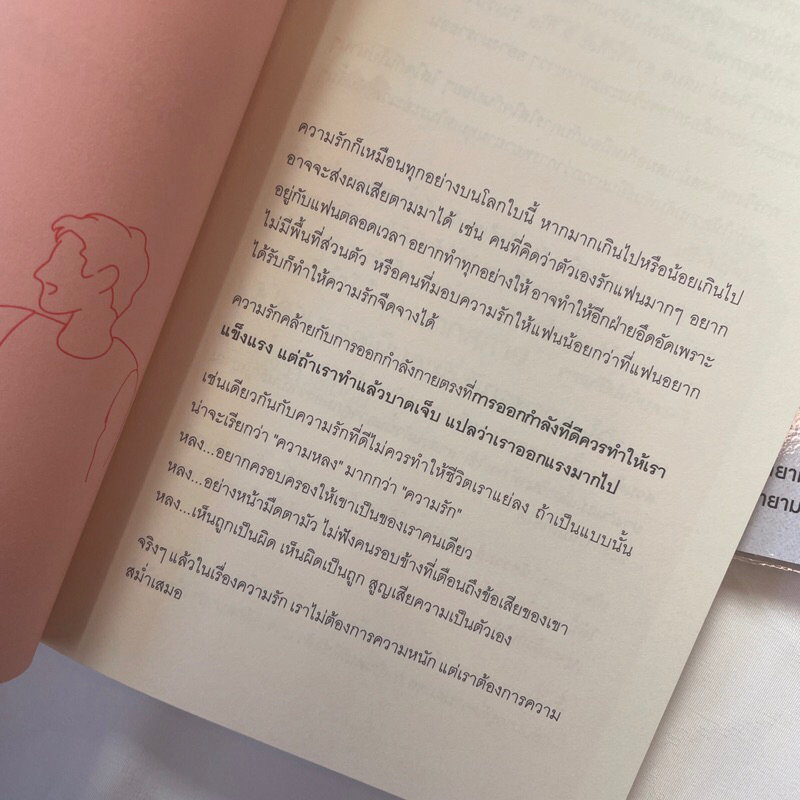 ความรักก็เหมือนทุกอย่างบนโลกใบนี้ หากมากเกินไปหรือน้อยเกินไป
อาจจะส่งผลเสียตามมาได้ เช่น คนที่คิดว่าตัวเองรักแฟนมากๆ อยาก
อยู่กับแฟนตลอดเวลา อยากทำทุกอย่างให้ อาจทำให้อีกฝ่ายอึดอัดเพราะ
ไม่มีพื้นที่ส่วนตัว หรือคนที่มอบความรักให้แฟนน้อยกว่าที่แฟนอยาก
ได้รับก็ทำให้ความรักจืดจางได้
ความรักคล้ายกับการออกกำลังกายตรงที่การออกกำลังที่ดีควรทำให้เรา
แข็งแรง แต่ถ้าเราทำแล้วบาดเจ็บ แปลว่าเราออกแรงมากไป
เช่นเดียวกันกับความรักที่ดีไม่ควรทำให้ชีวิตเราแย่ลง ถ้าเป็นแบบนั้น
น่าจะเรียกว่า "ความหลง" มากกว่า "ความรัก"
หลง...อยากครอบครองให้เขาเป็นของเราคนเดียว
หลง...อย่างหน้ามืดตามัว ไม่ฟังคนรอบข้างที่เตือนถึงข้อเสียของเขา
หลง...เห็นถูกเป็นผิด เห็นผิดเป็นถูก สูญเสียความเป็นตัวเอง
จริงๆ แล้วในเรื่องความรัก เราไม่ต้องการความหนัก แต่เราต้องการความ
สม่ำเสมอ